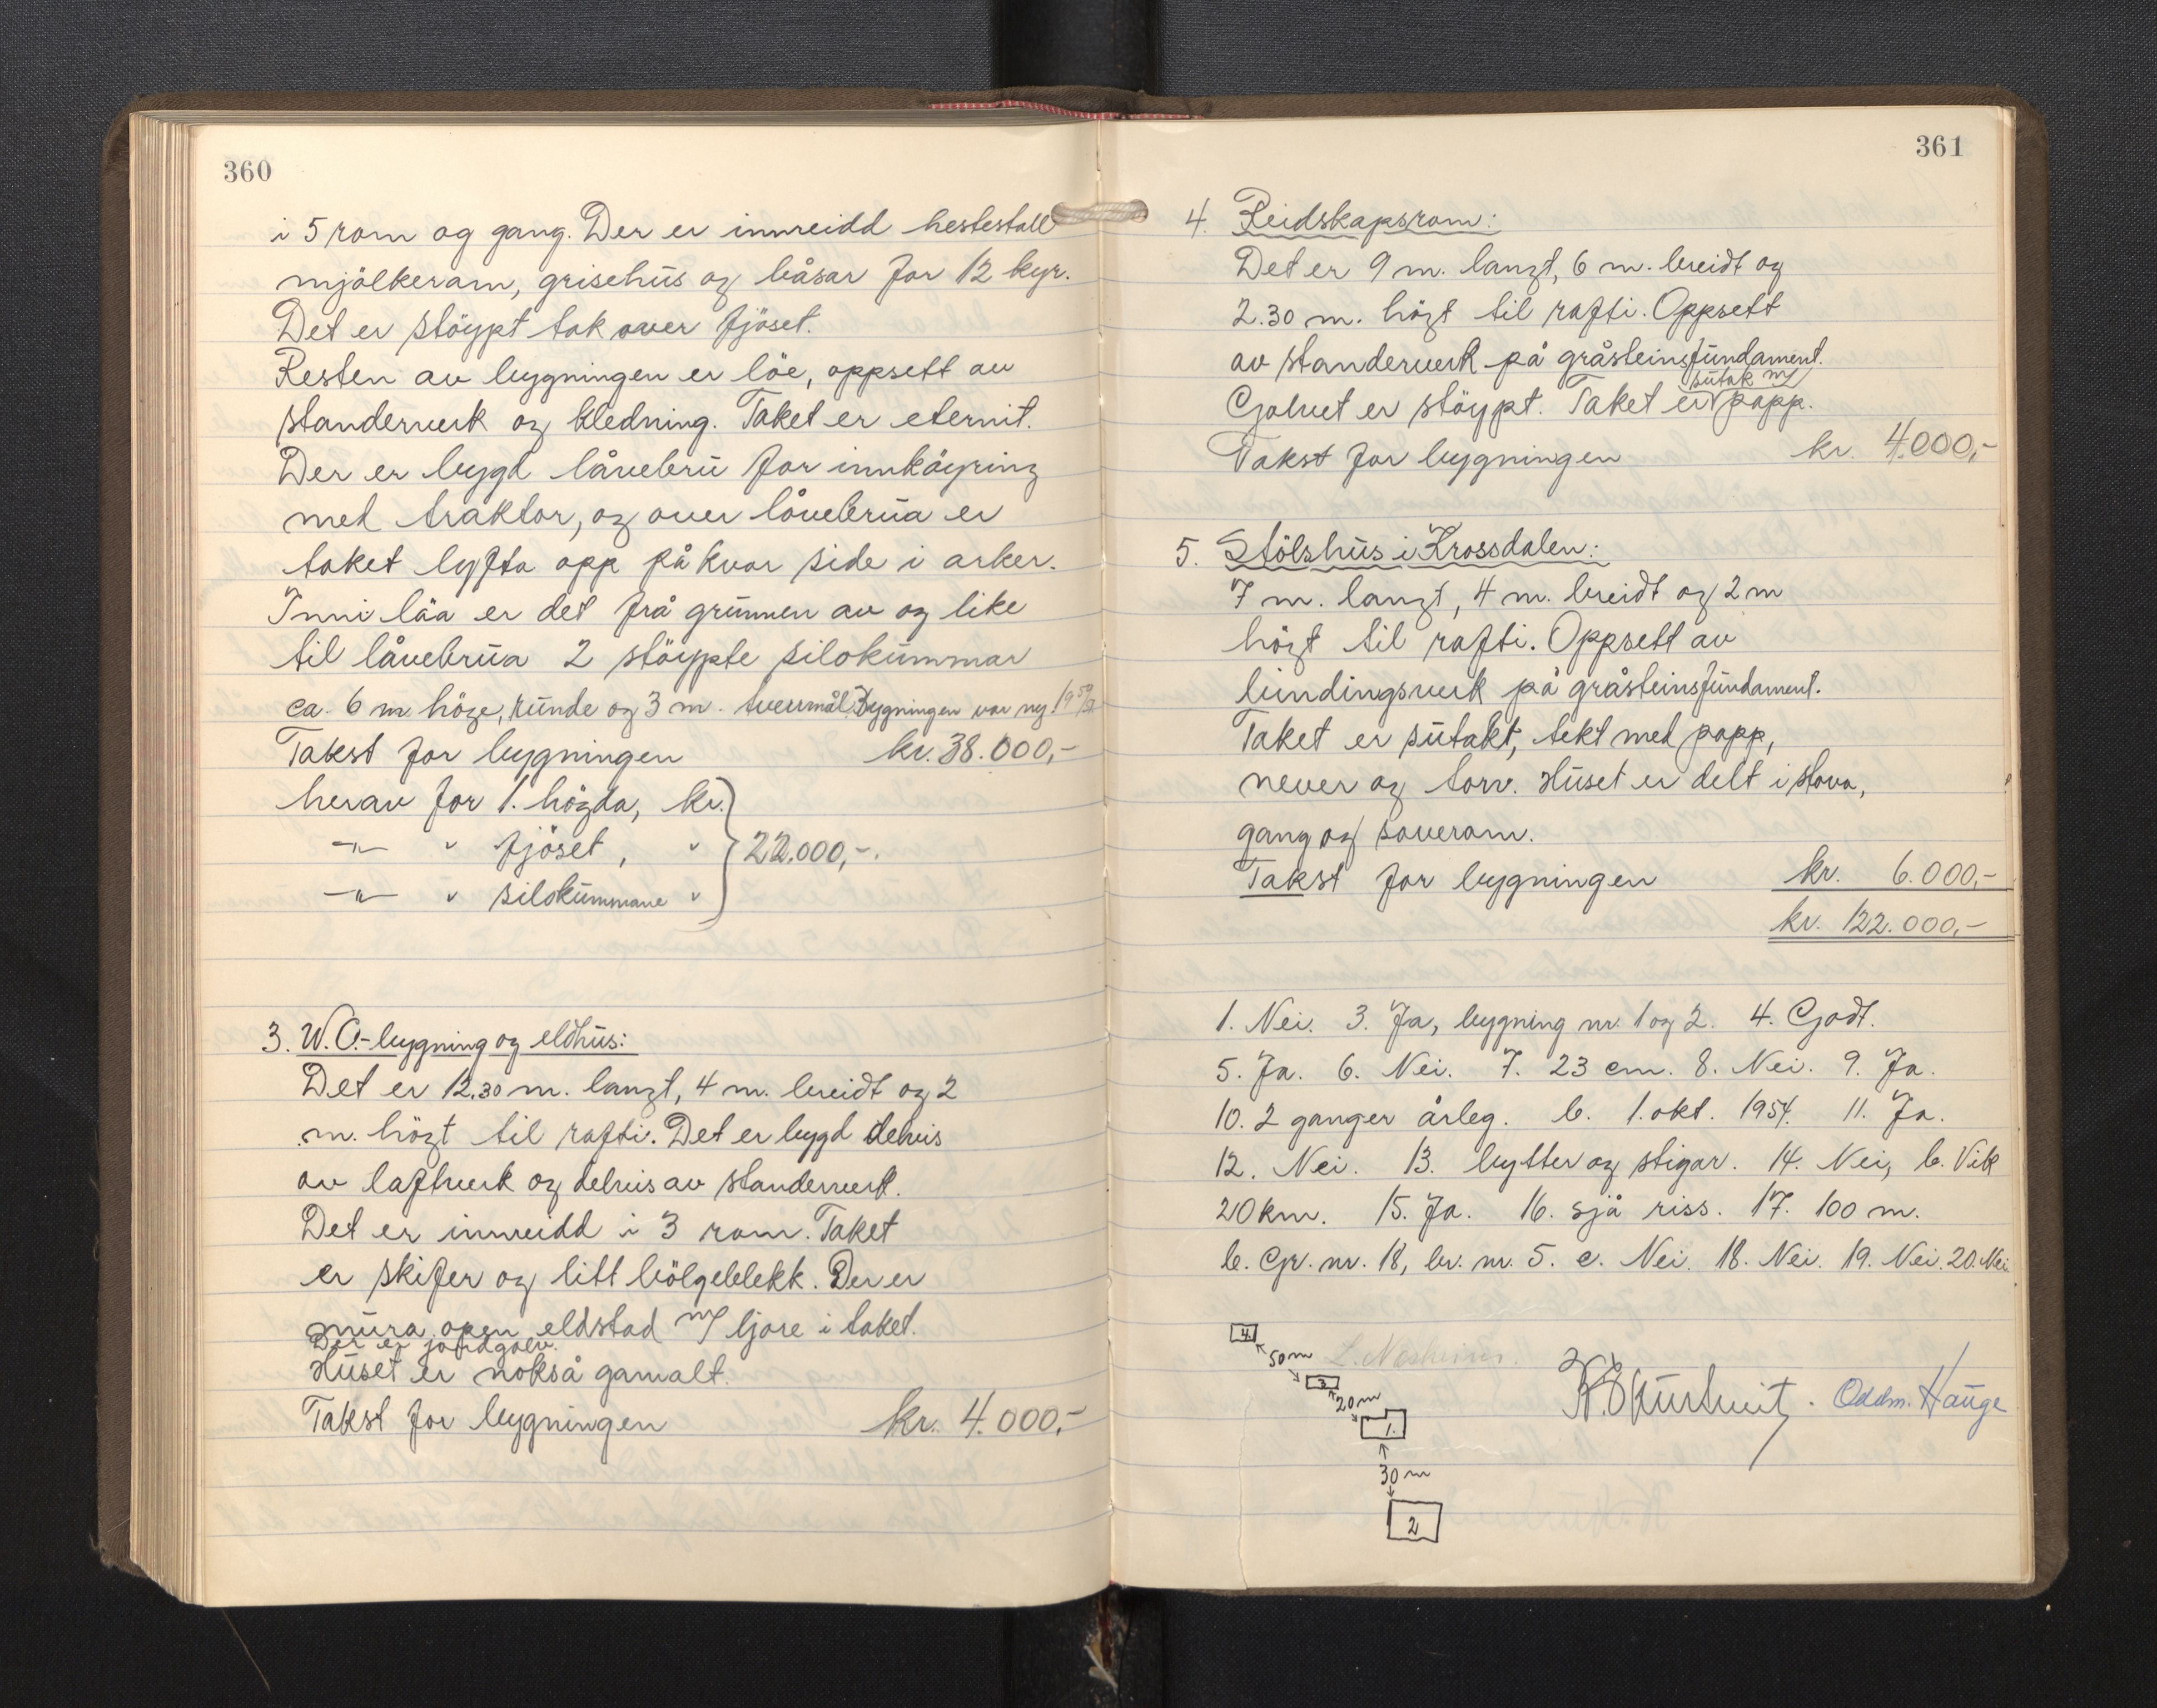 360
i 5 rom og gang. Der er innreidd hestestall
mjölkerom, grisehus og båsar for 12 kyr.
Det er stöypt tak over fjöset.
Resten av bygningen er löe, oppsett av
standerverk og kledning. Taket er eternit.
Der er bygd låvebru for innköyring
med traktor, og over låvebrua er
taket lyfta opp på kvar side i arker.
Inni löa er det frå grunnen av og like
til låvebrua 2 stöypte silokummar
ca. 6 m höge, runde og 3 m. tverrmål. Bygningen var ny
Takst for bygningen kr. 38.000,-
herav for 1. högda, kr.
-"- " fjöset, " 22.000,-.
-"- " silokummane "
3. W.C.-bygning og eldhus:
Det er 12.30 m. langt, 4 m. breidt og 2
m. högt til rafti. Det er bygd delvis
av laftverk og delvis av standerverk.
Det er innreidd i 3 rom. Taket
er skifer og litt bölgeblekk. Der er
mura open eldstad m/ ljore i taket.
Der er jordgolv.
Huset er nokså gamalt.
Takst for bygningen kr. 4.000,-
361
4. Reidskapsrom:
Det er 9 m. langt, 6 m. breidt og
2.30 m. högt til rafti. Oppsett
av standerverk på gråsteinsfundament.
sutak m/
Golvet er stöypt. Taket er papp.
Takst for bygningen kr. 4.000,-
5. Stölshus i Krossdalen:
7 m. langt, 4 m. breidt og 2 m
högt til rafti. Oppsett av
bindingsverk på gråsteinsfundament.
Taket er sutakt, tekt med papp,
never og torv. Huset er delt i stova,
gang og soverom.
Takst for bygningen kr. 6.000,-
kr. 122.000,-
1. Nei. 3. Ja, bygning nr. 1 og 2. 4. Godt.
5. Ja. 6. Nei. 7. 23 cm. 8. Nei. 9. Ja.
10. 2 ganger årleg. b. 1. okt. 1954. 11. Ja.
12. Nei. 13. bytter og stigar. 14. Nei, b. Vik
20 km. 15. Ja. 16. sjå riss. 17. 100 m.
b. Gr. nr. 18, br. nr. 5. c. Nei. 18. Nei. 19. Nei. 20. Nei
4
50 m
L. Nesheim.
3
20 m
Oddm. Hauge
1.
30 m
2